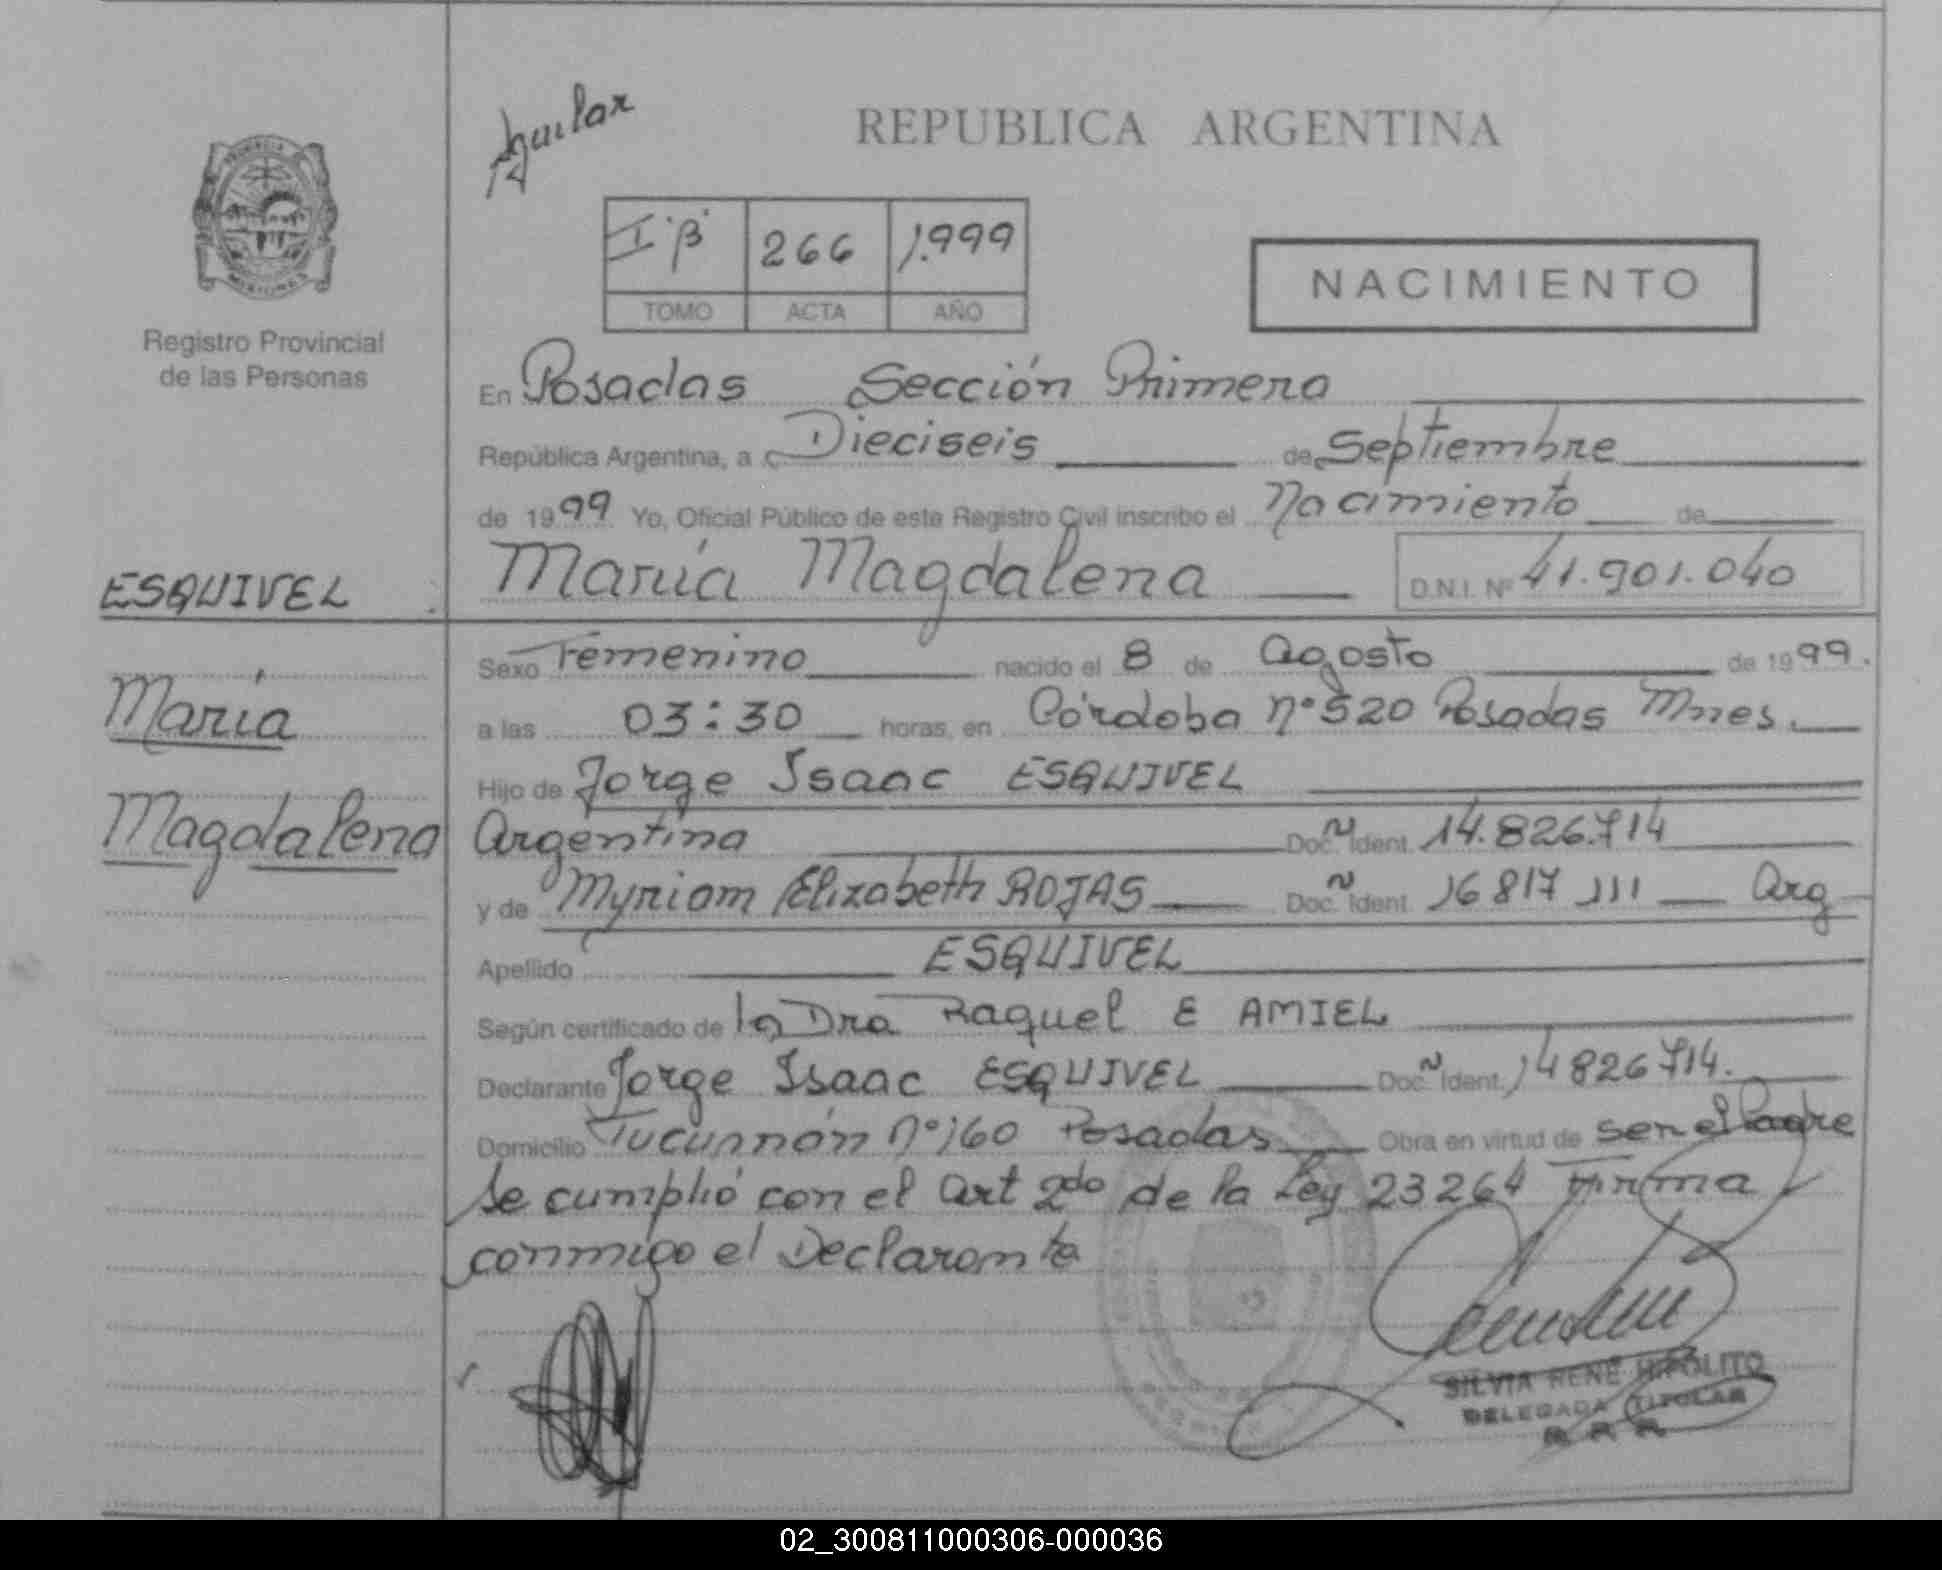 Aguilar
REPUBLICA ARGENTINA
I "B" 266 1.999
TOMO ACTA AÑO
NACIMIENTO
Registro Provincial
de las Personas
En Posadas Sección Primera
República Argentina, a Dieciseis de Septiembre
de 1999 Yo, Oficial Público de este Registro Civil inscribo el Nacimiento de
María Magdalena D.N.I. Nº 41.901.040
ESQUIVEL
María
Magdalena
Sexo Femenino nacido el 8 de Agosto de 1999.
a las 03:30 horas, en Córdoba nº 520 Posadas Mnes.
Hijo de Jorge Isaac ESQUIVEL
Argentina Doc. Ident. 14.826.714
y de Myriam Elizabeth ROJAS Doc. Ident. 16 817 111 Arg
Apellido ESQUIVEL
Según certificado de la Dra Raquel E AMIEL
Declarante Jorge Isaac ESQUIVEL Doc. Ident. 14826714.
Domicilio Tucumán nº 160 Posadas Obra en virtud de ser el Padre
Se cumplió con el Art 2do de la Ley 23264 Firma
conmigo el Declarante
SILVIA RENÉ HIPOLITO
DELEGADA TITULAR
02_300811000306-000036